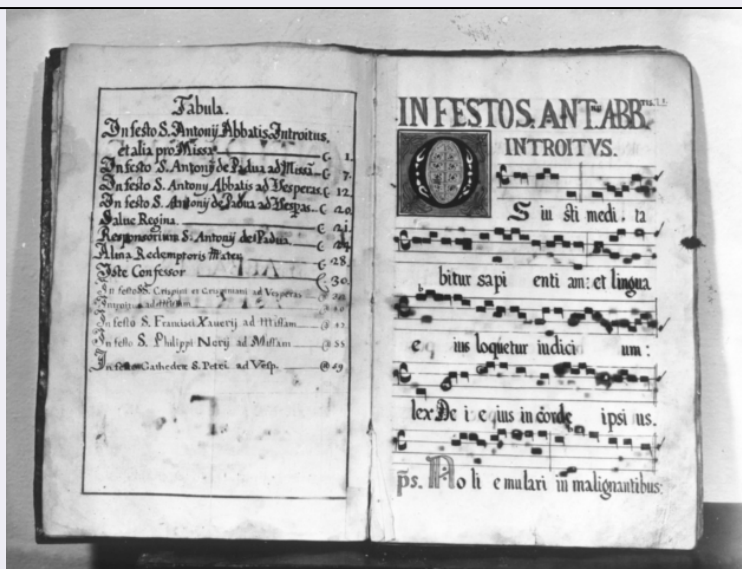 Tabula.
In festo S. Antonij Abbatis. Introitus,
et alia pro Missa C. 1.
In festo S. Antonij de Padua ad Missã C. 7.
In festo S. Antony Abbatis ad Vesperas. C. 12
In festo S. Antonij de Padua ad Vesp̃as. C. 20
Salue Regina C. 21.
Responsorium S. Antonij de Padua.
Alma Redemptoris Mater 28.
Iste Confessor 30.
In festo SS. Crispini et Crispiniani ad Vesperas
ad Missam
In festo S. Francisci Xauerij ad Missam
In festo S. Philippi Nerij ad Missam
In festo Cathedre S. Petri ad Vesp.
IN FESTO S. ANT. ABB.
INTROITVS.
O
S iu sti medi. ta
bitur sapi enti am: et lingua
e ius loquetur iudici um:
lex De i e ius in corde ipsi us.
p̃s. Noli emulari in malignantibus: